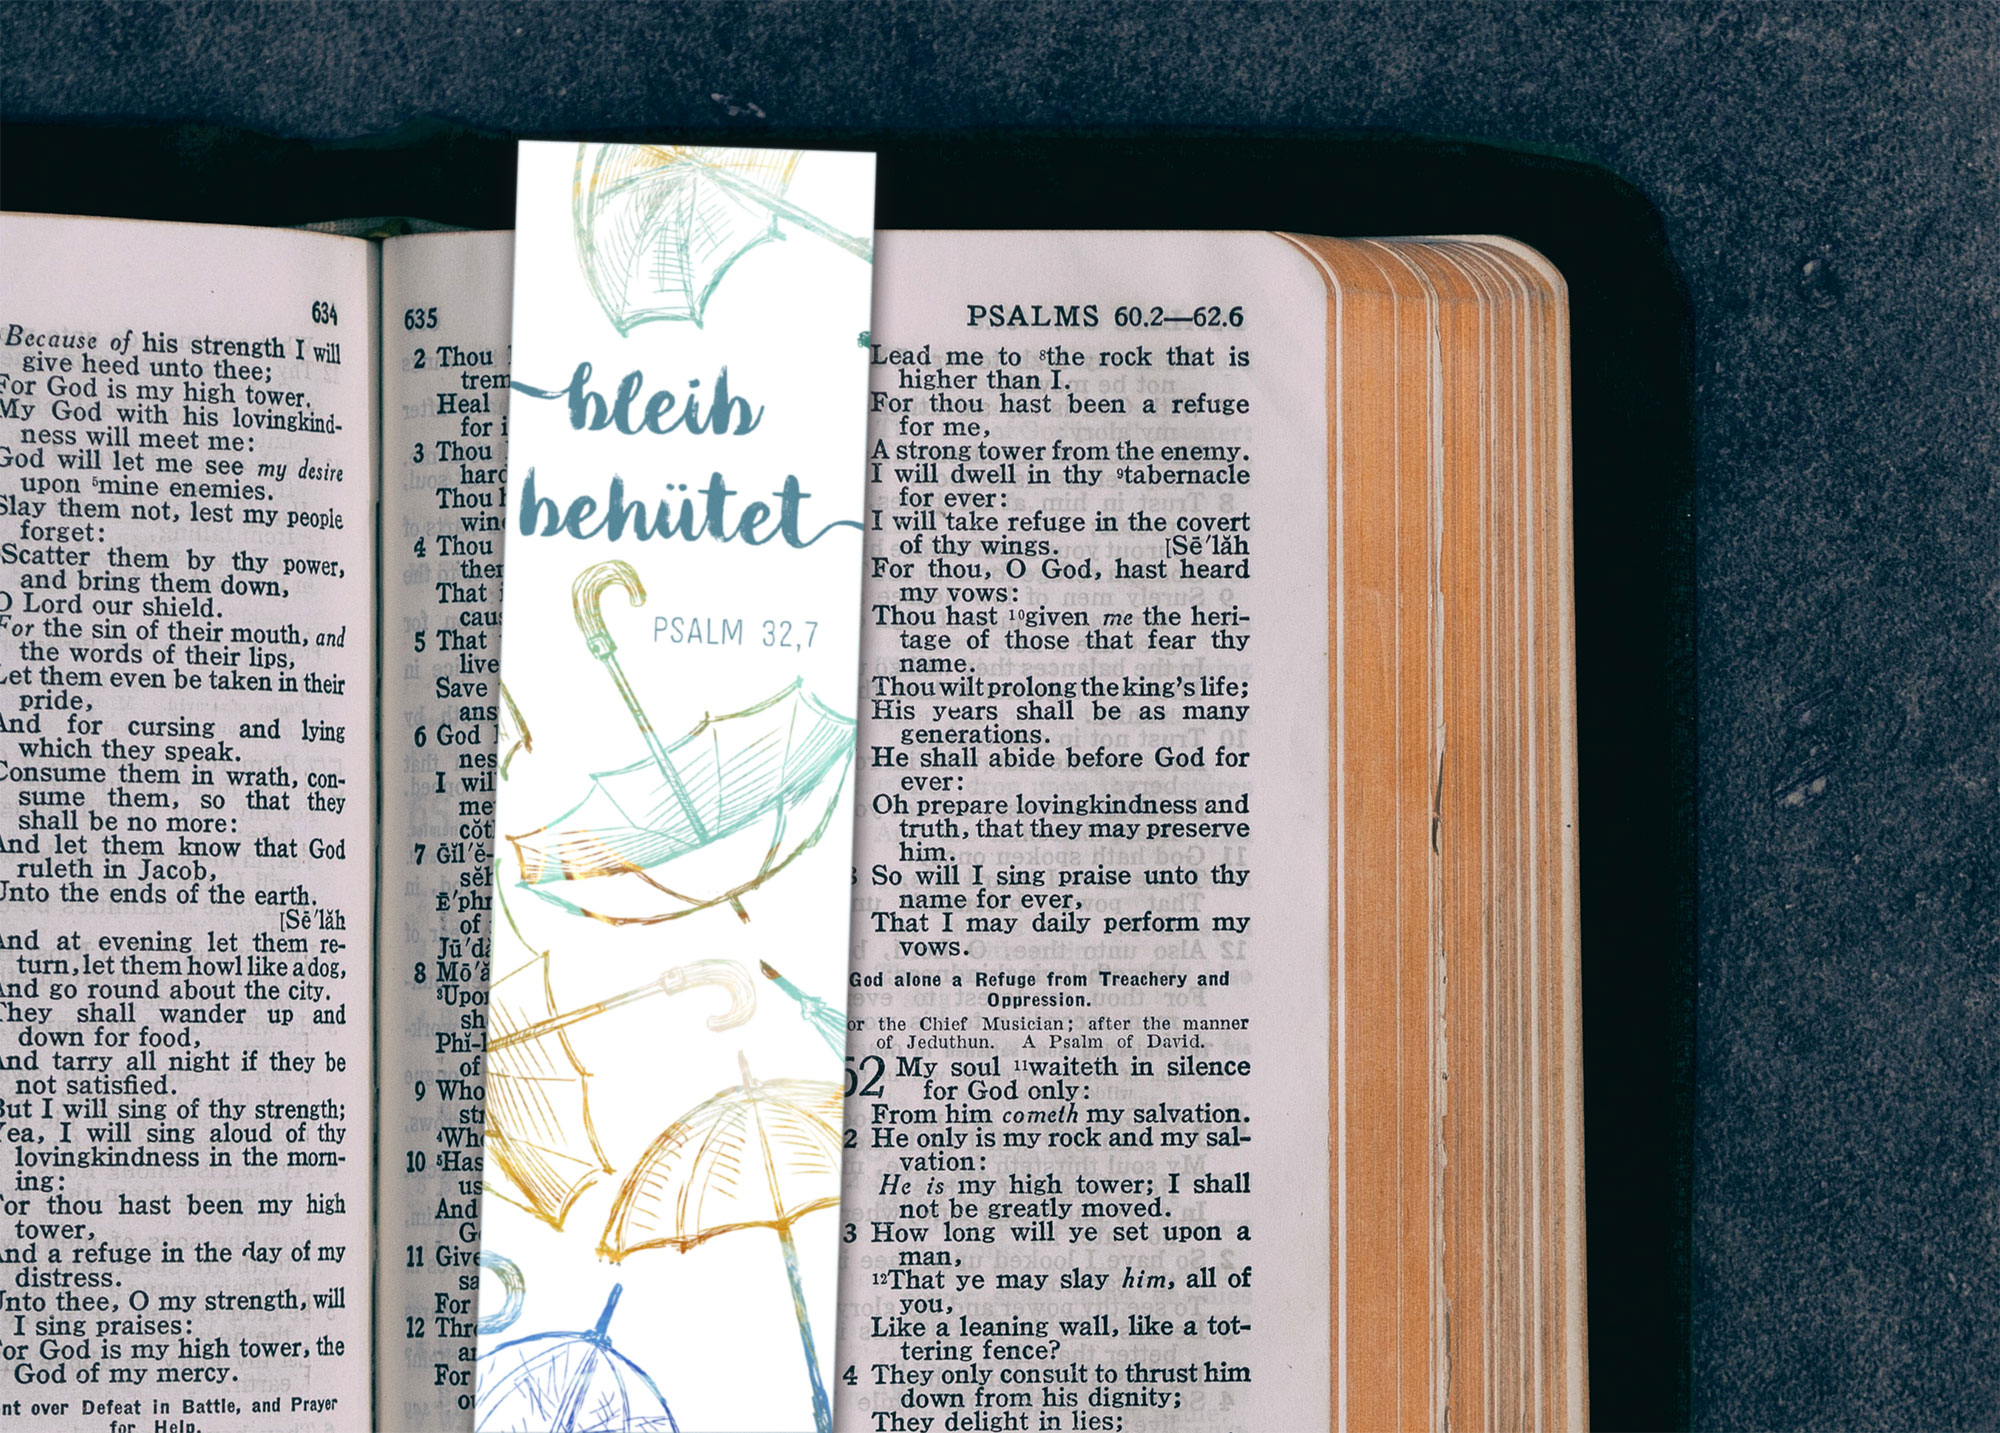 634
Because of his strength I will
give heed unto thee;
For God is my high tower.
My God with his lovingkind-
ness will meet me:
God will let me see my desire
upon ⁵mine enemies.
Slay them not, lest my people
forget:
Scatter them by thy power,
and bring them down,
O Lord our shield.
For the sin of their mouth, and
the words of their lips,
Let them even be taken in their
pride,
And for cursing and lying
which they speak.
Consume them in wrath, con-
sume them, so that they
shall be no more:
And let them know that God
ruleth in Jacob,
Unto the ends of the earth.
[Sē′lăh
And at evening let them re-
turn, let them howl like a dog,
And go round about the city.
They shall wander up and
down for food,
And tarry all night if they be
not satisfied.
But I will sing of thy strength;
Yea, I will sing aloud of thy
lovingkindness in the morn-
ing:
For thou hast been my high
tower,
And a refuge in the day of my
distress.
Unto thee, O my strength, will
I sing praises:
For God is my high tower, the
God of my mercy.
nt over Defeat in Battle, and Prayer
for Help.
635
2 Thou
trem
Heal
for i
3 Thou
hard
Thou h
wine
4 Thou
ther
That i
caus
5 That
live
Save
ans
6 God
nes
I wil
me
cŏt
7 Gĭl′ĕ-
sĕh
Ē′phr
of
Jū′dà
8 Mō′ă
³Upon
sh
Phĭ-l
of
9 Who
str
⁴Who
10 ⁵Has
us
And
Go
11 Give
sa
For
12 Thro
an
For
ou
bleib
behütet
PSALM 32,7
PSALMS 60.2—62.6
Lead me to ⁸the rock that is
higher than I.
For thou hast been a refuge
for me,
A strong tower from the enemy.
I will dwell in thy ⁹tabernacle
for ever:
I will take refuge in the covert
of thy wings. [Sē′lăh
For thou, O God, hast heard
my vows:
Thou hast ¹⁰given me the heri-
tage of those that fear thy
name.
Thou wilt prolong the king's life;
His years shall be as many
generations.
He shall abide before God for
ever:
Oh prepare lovingkindness and
truth, that they may preserve
him.
8 So will I sing praise unto thy
name for ever,
That I may daily perform my
vows.
God alone a Refuge from Treachery and
Oppression.
For the Chief Musician; after the manner
of Jeduthun. A Psalm of David.
62 My soul ¹¹waiteth in silence
for God only:
From him cometh my salvation.
2 He only is my rock and my sal-
vation:
He is my high tower; I shall
not be greatly moved.
3 How long will ye set upon a
man,
¹²That ye may slay him, all of
you,
Like a leaning wall, like a tot-
tering fence?
4 They only consult to thrust him
down from his dignity;
They delight in lies;